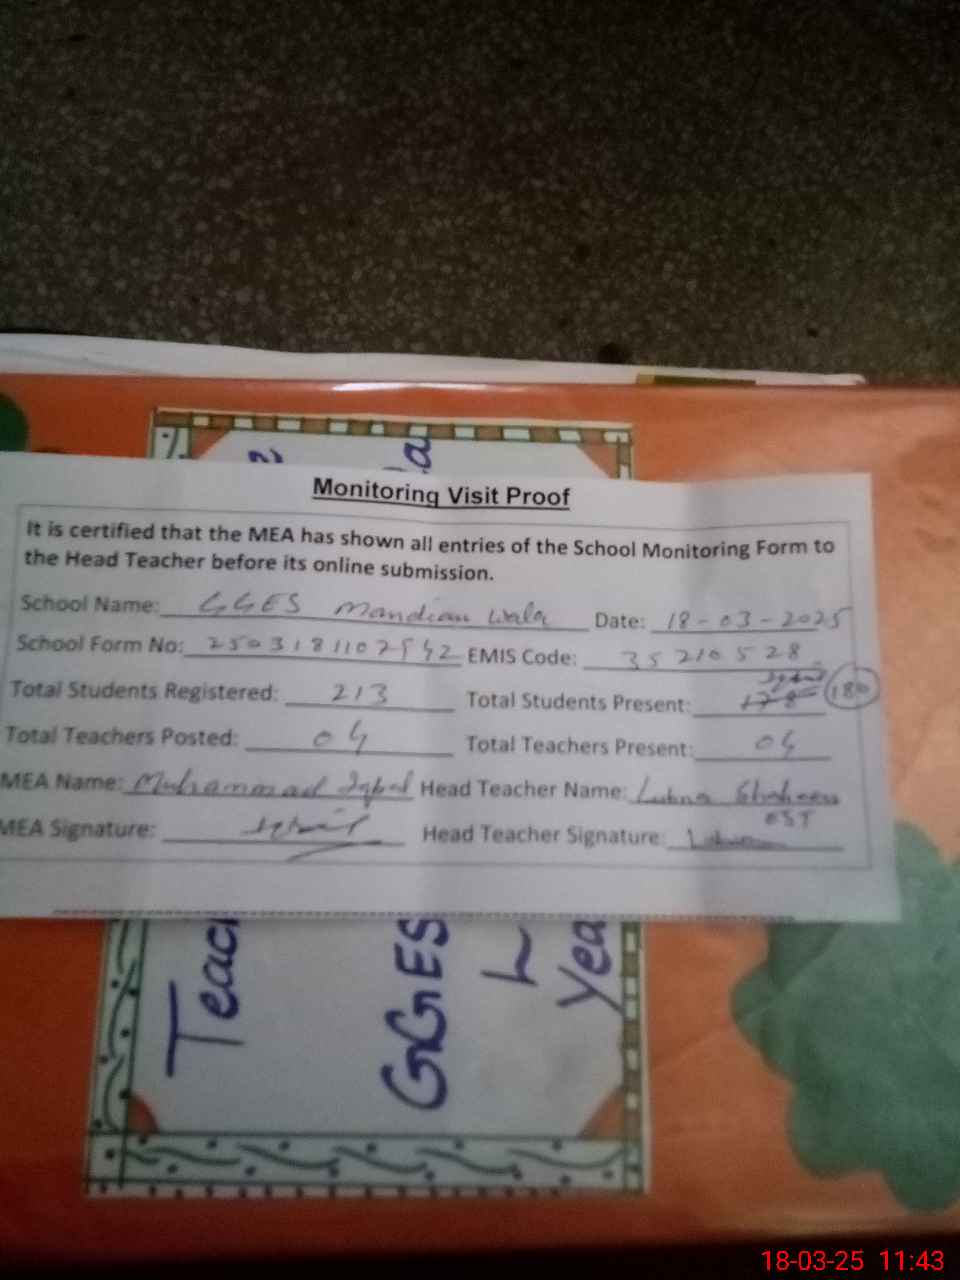 Monitoring Visit Proof
It is certified that the MEA has shown all entries of the School Monitoring Form to
the Head Teacher before its online submission.
School Name: GGES Mandian wala Date: 18-03-2025
School Form No: EMIS Code: 35210528
Total Students Registered: 213 Total Students Present: 178 180
Total Teachers Posted: 04 Total Teachers Present: 04
MEA Name: Muhammad Iqbal Head Teacher Name: Lubna Shaheen
EST
MEA Signature: Iqbal Head Teacher Signature:
Teac
GGES
Yea
18-03-25 11:43